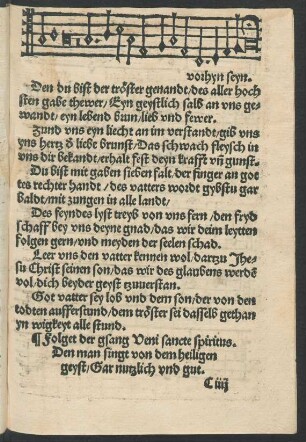 vorhyn seyn.
Den du bist der tröster genandt/des aller hoch
sten gabe thewer/Eyn geystlich salb an vns ge-
wandt/eyn lebend brun/lieb vnd fewer.
Zund vns eyn liecht an im verstandt/gib vns
yns hertz d̕ liebe brunst/Das schwach fleysch in
vns dir bekandt/erhalt fest deyn krafft vn̄ gunst.
Du bist mit gaben siebenfalt/der finger an got
tes rechter handt/des vatters wordt gybstu gar
baldt/mit zungen in alle landt/
Des feyndes lyst treyb von vns fern/den fryd
schaff bey vns deyne gnad/das wir deim leytten
folgen gern/vnd meyden der seelen schad.
Leer vns den vatter kennen wol/darzu Jhe-
su Christ seinen son/das wir des glaubens werdē
vol/dich beyder geyst zuuerstan.
Got vatter sey lob vnd dem son/der von den
todten aufferstund/dem tröster sei dasselb gethan
yn wigkeyt alle stund.
¶ Folget der gsang Veni sancte spiritus.
Den man singt von dem heiligen
geyst/Gar nutzlich vnd gut.
C iiij